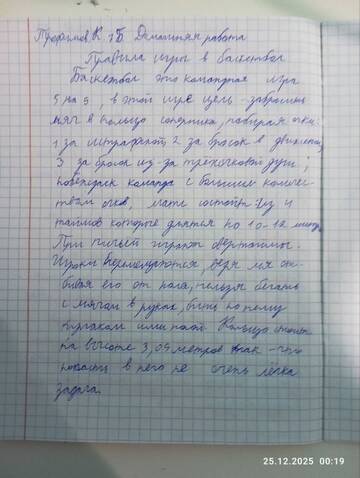 Трофимов К. 7Б Домашняя работа
Правила игры в баскетбол
Баскетбол это командная игра
5 на 5, в этой игре цель - забросить
мяч в кольцо соперника, набирая очки:
1 за штрафной, 2 за бросок в движении,
3 за бросок из-за трехочковой дуги;
побеждает команда с большим количес-
твом очков, матч состоит из 4
таймов которые длятся по 10-12 минут.
При ничьей играют овертаймы.
Игроки перемещаются, ведя мяч от-
бивая его от пола, нельзя бегать
с мячом в руках, бить по нему
кулаком или ногой. Кольцо стоит
на высоте 3,05 метров так - что
попасть в него не очень лёгка
задача.
25.12.2025 00:19